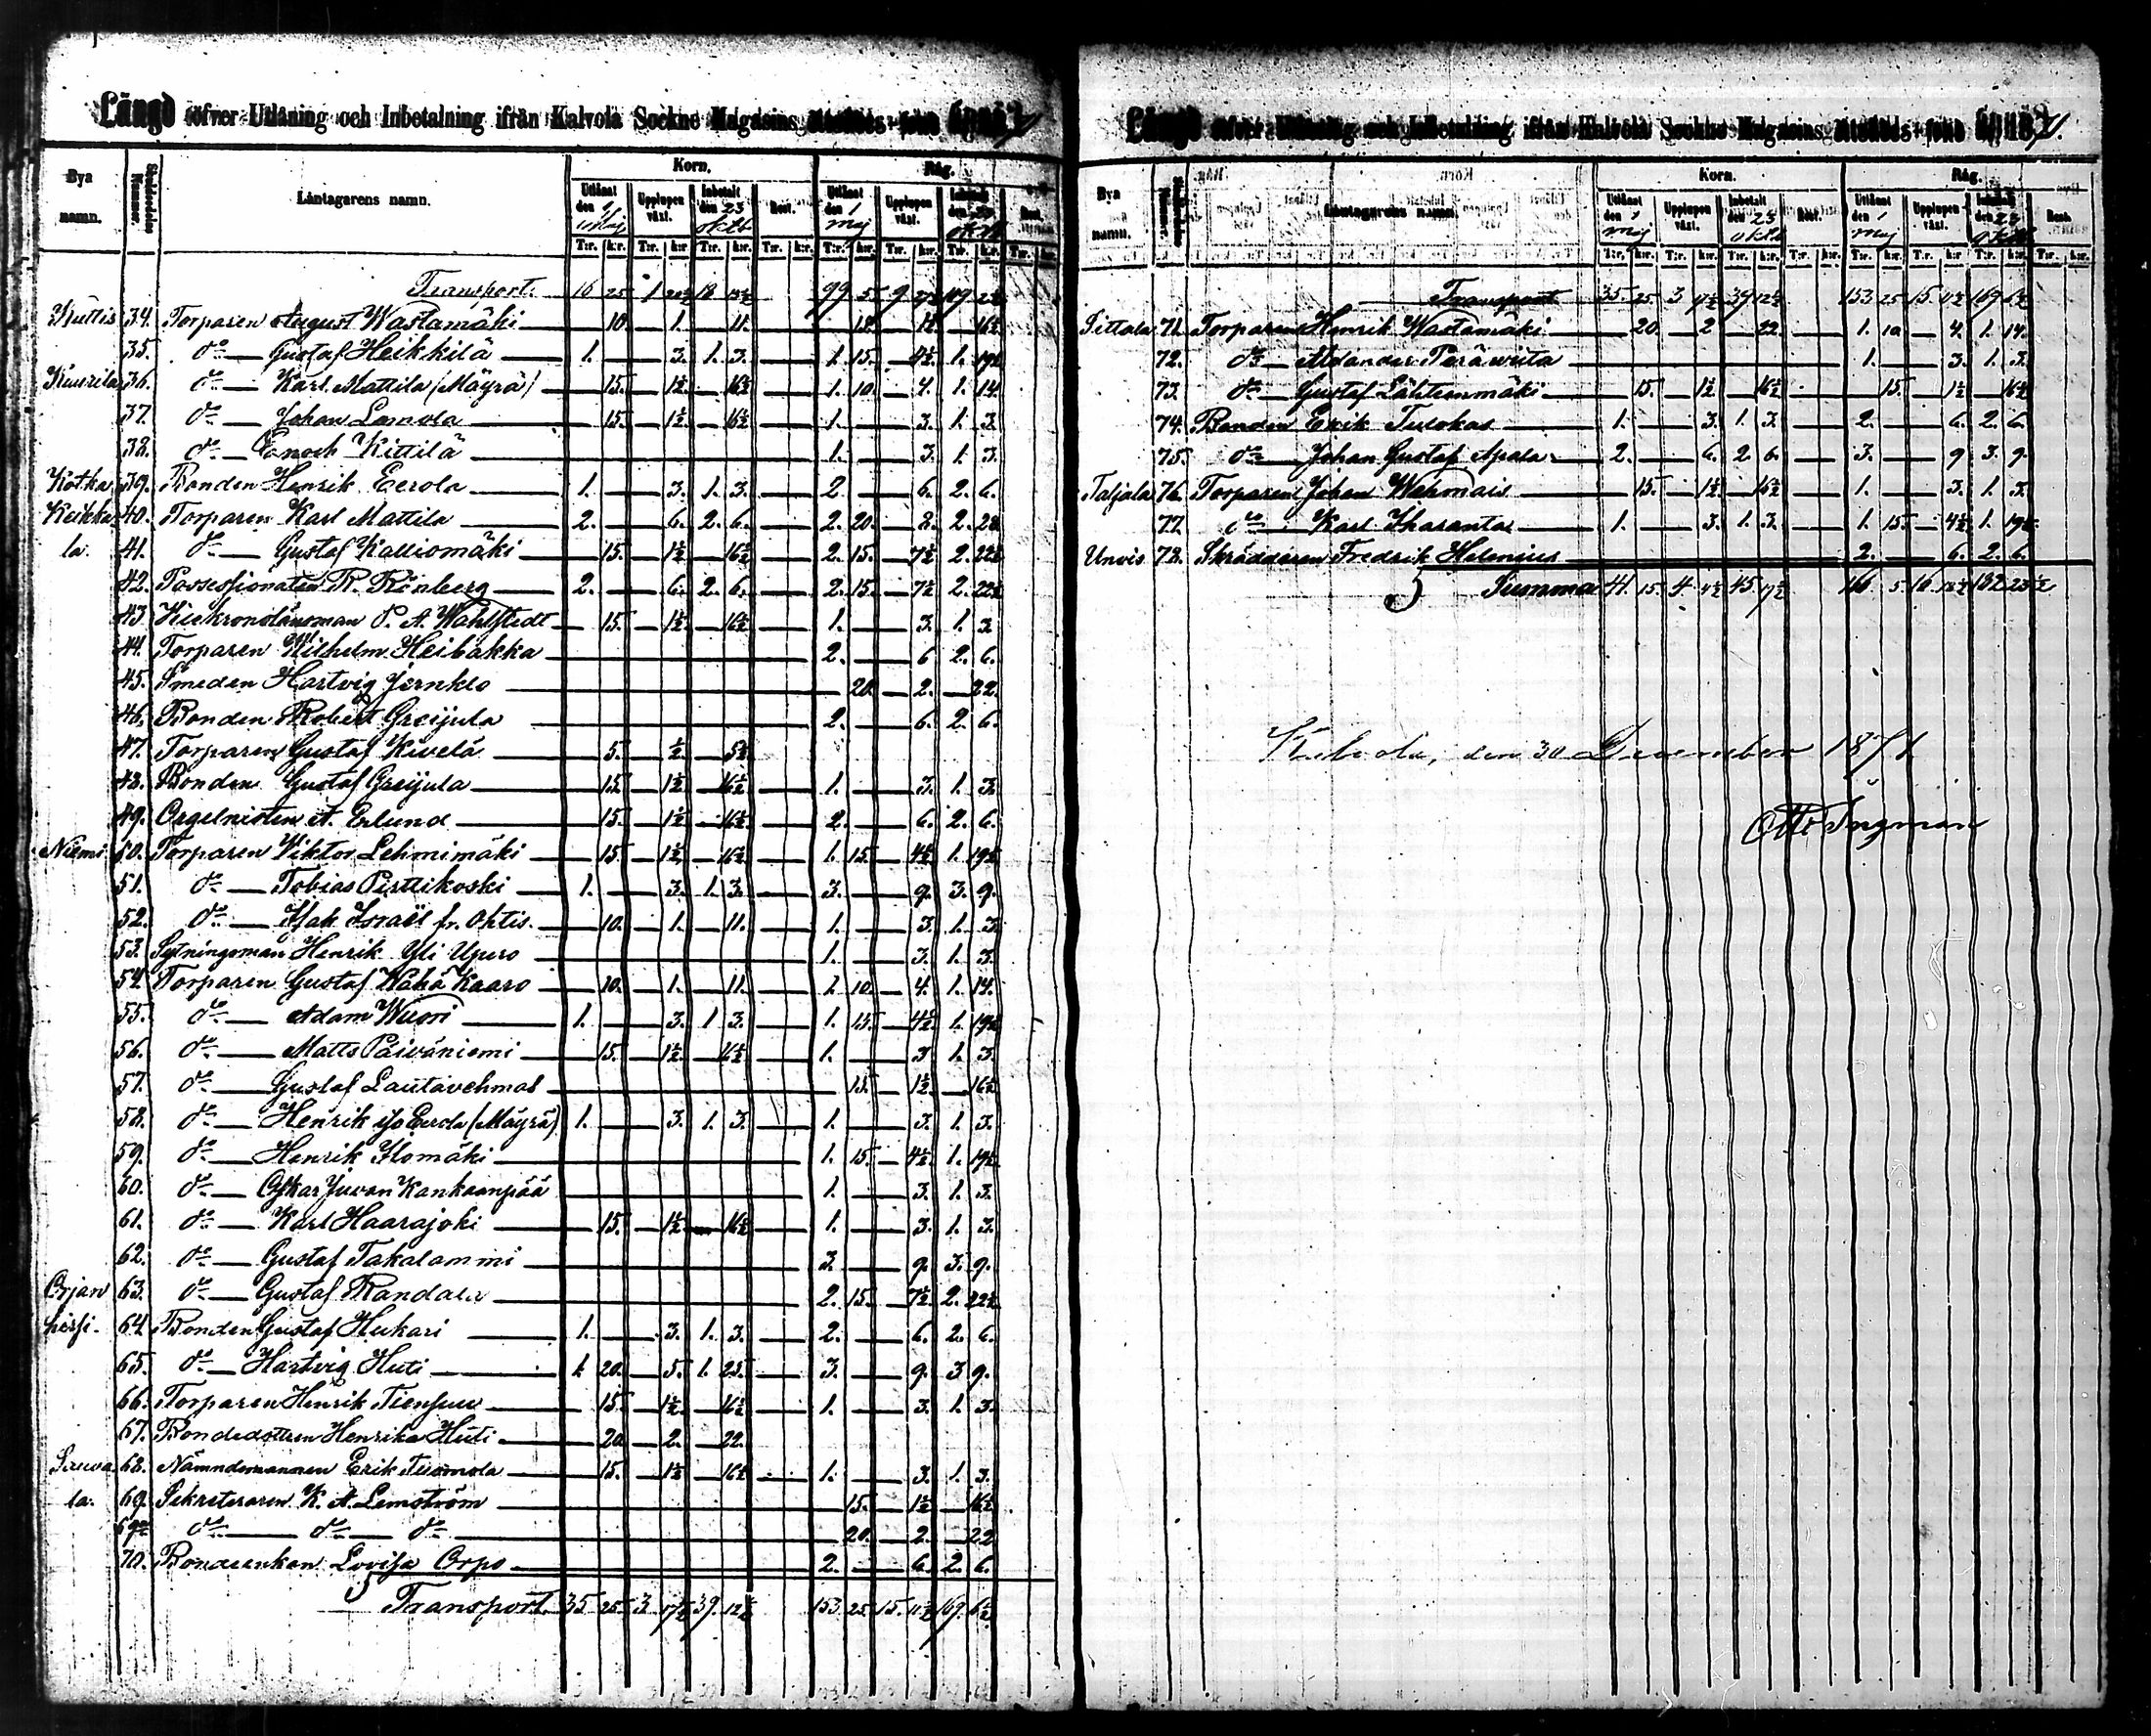 Längd öfver Utlåning och Inbetalning ifrån Kalvola Sockne Magasins
Bya namn. Låntagarens namn. Korn. Råg.
Utlånt den 1 Maj Upplupen växt. Inbetalt den 23 oktb Rest. Utlånt den 1 Maj Upplupen växt. Inbetalt den 23 oktb Rest.
T:r. k:r. T:r. k:r. T:r. k:r. T:r. k:r. T:r. k:r. T:r. k:r. T:r. k:r. T:r. k:r.
Transport 16 25 1 18 99 5 9 109
Kuttis 34. Torparen August Wastamäki 10. 1. 11. 15. 1½ 16½
35. d:o Gustaf Heikkilä 1. 3. 1. 3. 1. 15. 4½ 1. 19½
Kuurila 36. d:o Karl Mattila (Mäyrä) 15. 1½ 16½ 1. 10. 4. 1. 14.
37. d:o Johan Lomola 15. 1½ 16½ 1. 3. 1. 3.
38. d:o Enoch Kittilä 1. 3. 1. 3.
Kotka 39. Bonden Henrik Eerola 1. 3. 1. 3. 2. 6. 2. 6.
Keikka 40. Torparen Karl Mattila 2. 6. 2. 6. 2. 20. 8. 2. 28
la. 41. d:o Gustaf Kalliomäki 15. 1½ 16½ 2. 15. 7½ 2. 22½
42. Possessionaten R. Rönberg 2. 6. 2. 6. 2. 15. 7½ 2. 22½
43. Vicekronolänsman P. A. Wahlstedt 15. 1½ 16½ 1. 3. 1. 3
44. Torparen Wilhelm Heibakka 2. 6 2. 6.
45. Smeden Hartvig Jernklo 20. 2. 22.
46. Bonden Robert Greijula 2. 6. 2. 6.
47. Torparen Gustaf Kivelä 5. ½ 5½
48. Bonden Gustaf Greijula 15. 1½ 16½ 1. 3. 1. 3.
49. Orgelnisten A. Erlund 15. 1½ 16½ 2. 6. 2. 6.
Niemi 50. Torparen Viktor Lehmimäki 15. 1½ 16½ 1. 15. 4½ 1. 19½
51. d:o Tobias Pirttikoski 1. 3. 1. 3. 3. 9. 3. 9.
52. d:o Isak Israel fr. Ohtis. 10. 1. 11. 1. 3. 1. 3.
53. Sytningsman Henrik Yli Ujuro 1. 3. 1. 3.
54. Torparen Gustaf Wähä Kaaro 10. 1. 11. 1. 10. 4. 1. 14.
55. d:o Adam Wuori 1. 3. 1 3. 1. 15. 4½ 1. 19½
56. d:o Matts Päiväniemi 15. 1½ 16½ 1. 3 1. 3.
57. d:o Gustaf Lautavehmas 15. 1½ 16½
58. d:o Henrik Eerola (Mäyrä) 1. 3. 1. 3. 1. 3. 1. 3.
59. d:o Henrik Ylomäki 1. 15. 4½ 1. 19½
60. d:o Oskar Juvan Kankaanpää 1. 3. 1. 3.
61. d:o Karl Haarajoki 15. 1½ 16½ 1. 3. 1. 3.
62. d:o Gustaf Takalammi 3. 9. 3. 9.
Orjan 63. d:o Gustaf Randala 2. 15. 7½ 2. 22½
hirsi. 64 Bonden Gustaf Hukari 1. 3. 1. 3. 2. 6. 2. 6.
65. d:o Hartvig Huti 1 20. 5. 1. 25. 3. 9. 3 9.
66. Torparen Henrik Tiensuu 15. 1½ 16½ 1. 3. 1. 3.
67. Bondedottren Henrika Huti 20 2. 22.
Sauva 68. Nämndemannen Erik Tuomola 15. 1½ 16½ 1. 3. 1. 3.
la. 69. Sekreteraren K. A. Lemström 15. 1½ 16½
69½ d:o d:o d:o 20. 2. 22
70. Bondeenkan Lovisa Orpo 2. 6. 2. 6.
Transport. 35 25. 3 17½ 39. 12½ 153. 25. 15. 11½ 169. 6½
Längd öfver Utlåning och Inbetalning ifrån Kalvola Sockne Magasins
Bya namn. Låntagarens namn. Korn. Råg.
Utlånt den 1 Maj Upplupen växt. Inbetalt den 23 oktb Rest. Utlånt den 1 Maj Upplupen växt. Inbetalt den 23 oktb Rest
T:r. k:r. T:r. k:r. T:r. k:r. T:r. k:r. T:r. k:r. T:r. k:r. T:r. k:r. T:r. k:r.
Transport 35. 25 3 17½ 39 12½ 153 25 15 11½ 169 6½
Pittala 71. Torparen Henrik Wastamäki 20. 2 22. 1. 10 4. 1. 14.
72. d:o Aldander Peräwirta 1. 3. 1. 3.
73. d:o Gustaf Lähteenmäki 15. 1½ 16½ 15. 1½ 16½
74. Bonden Erik Tulokas 1. 3. 1. 3. 2. 6. 2. 6.
75. d:o Johan Gustaf Apala 2. 6. 2 6. 3. 9 3. 9.
Taljala 76. Torparen Johan Wehmais 15. 1½ 16½ 1. 3. 1. 3.
77. d:o Karl Iharanta 1. 3. 1. 3. 1. 15. 4½ 1. 19½
Unois 78. Skräddaren Fredrik Helenius 2. 6. 2. 6.
Summa 41. 15. 4 45. 17½ 166 5. 16 182 23½
Kalvola, den 30 December 1871
Otto Ingman